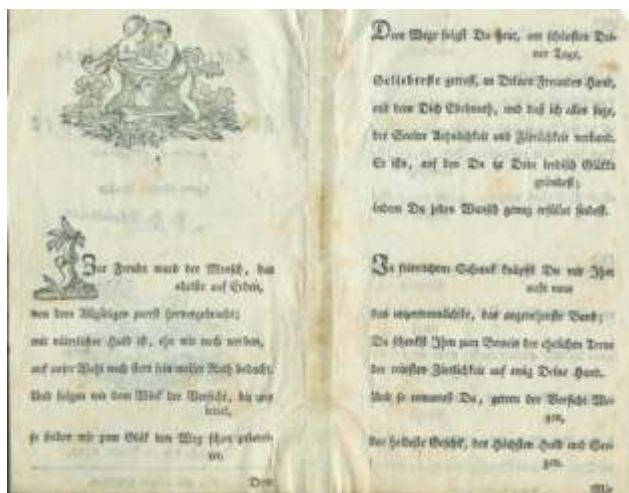 Zur Freude ward der Mensch, das
edelste auf Erden,
von dem Allgütigen zuerst hervorgebracht;
mit väterlicher Huld ist, ehe wir noch werden,
auf unser Wohl auch stets sein weiser Rath bedacht.
Und folgen wir dem Wink der Vorsicht, die uns
leitet,
so finden wir zum Glük den Weg schon
Dem
Dem Wege folgst Du heut, am schönsten Dei-
ner Tage,
Geliebteste getrost, an Deines Freundes Hand,
mit dem Dich Edelmuth, und daß ich alles sage,
der Seelen Aehnlichkeit und Zärtlichkeit verband.
Er ists, auf den Du Dein irdisch Glükke
gründest;
indem Du jeden Wunsch genug erfüllet findest.
In feierlichem Schmuck knüpfst Du mit Ihm
aufs neue
das unzertrennlichste, das angenehmste Band;
Du schenkst Ihm zum Beweis der ehelichen Treue
der reinsten Zärtlichkeit auf ewig Deine Hand.
Und so Du, getreu der Vorsicht We-
gen,
das Geschik, des Höchsten Huld und See-
gen.